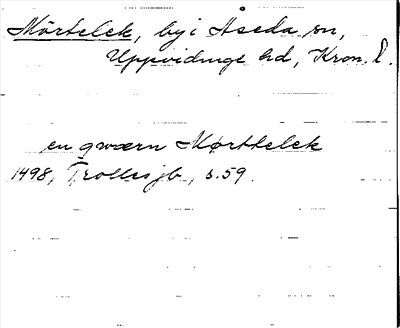 Mörtelek, by i Åseda sn,
Uppvidinge hd, Kron. l.
en qwærn Mørttelek
1498, Trolles jb, s. 59.